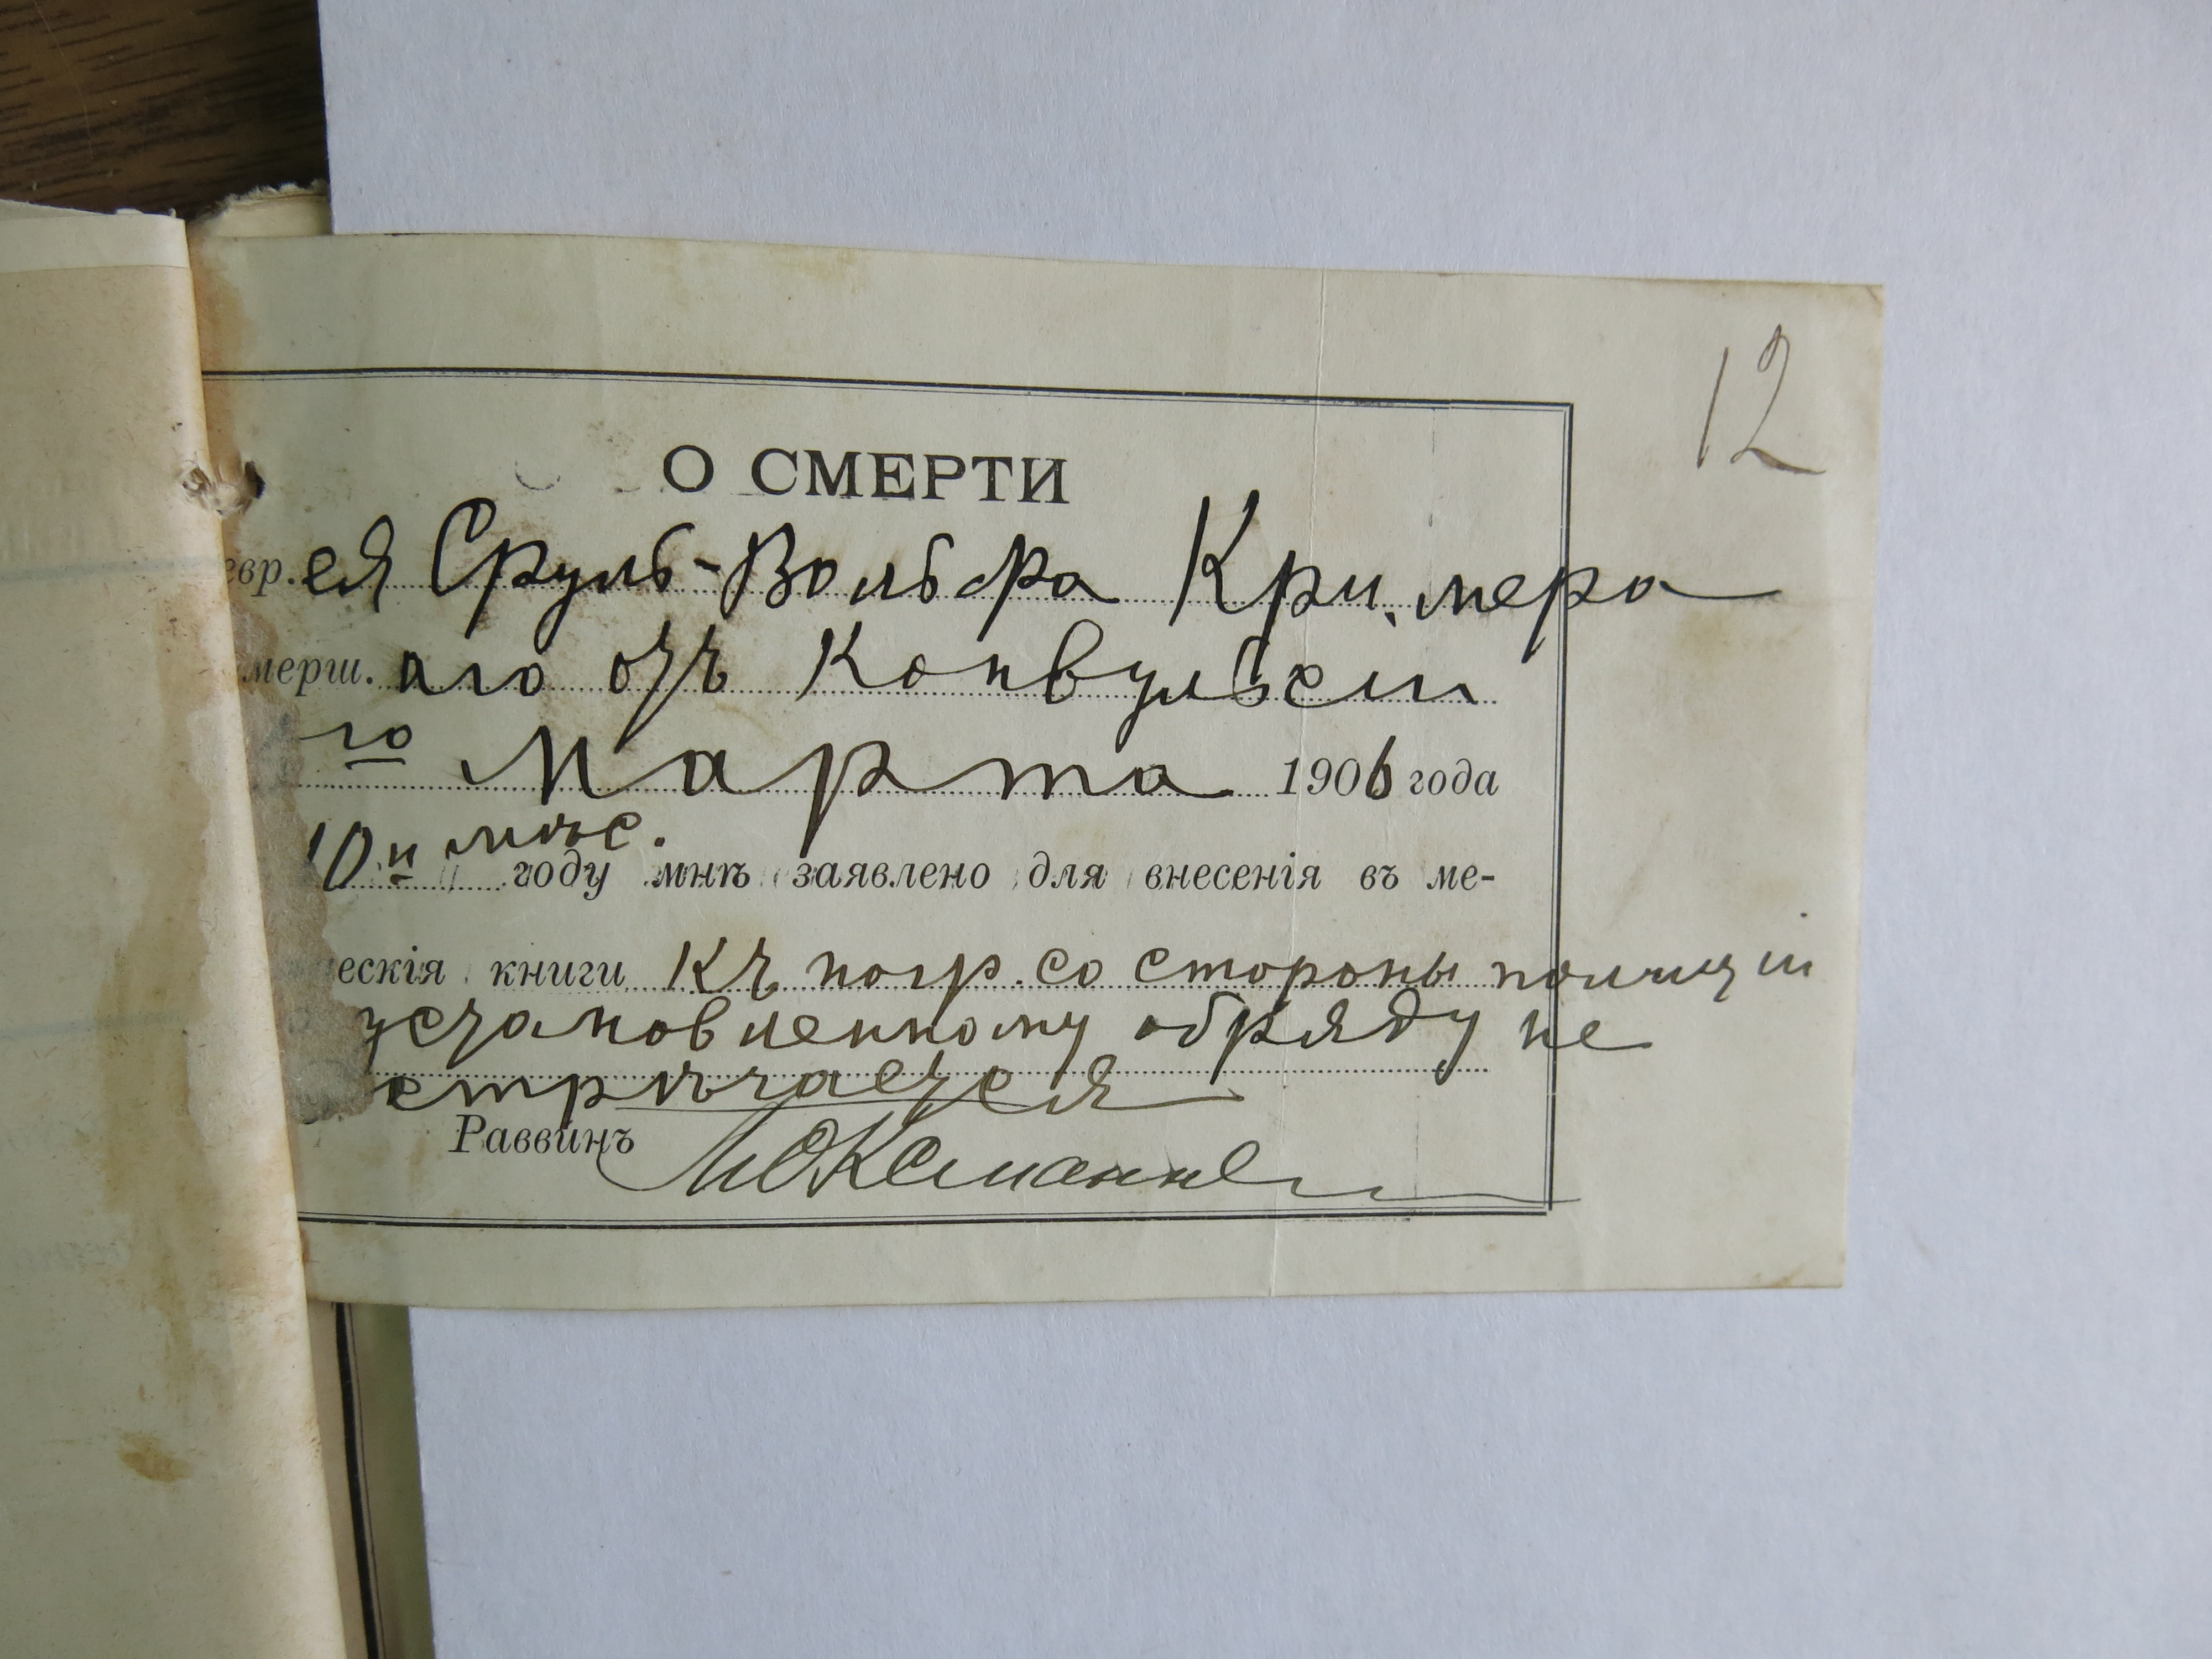 12
О СМЕРТИ
евр.ея Сруль-Вольфа Кримера
мерш.аго отъ Конвульсіи
го Марта 1906 года
10и мѣс.
году мнѣ заявлено для внесенія въ ме-
ескія книги Къ погр. со стороны полиціи
установленному обряду не
стрѣчается
Раввинъ